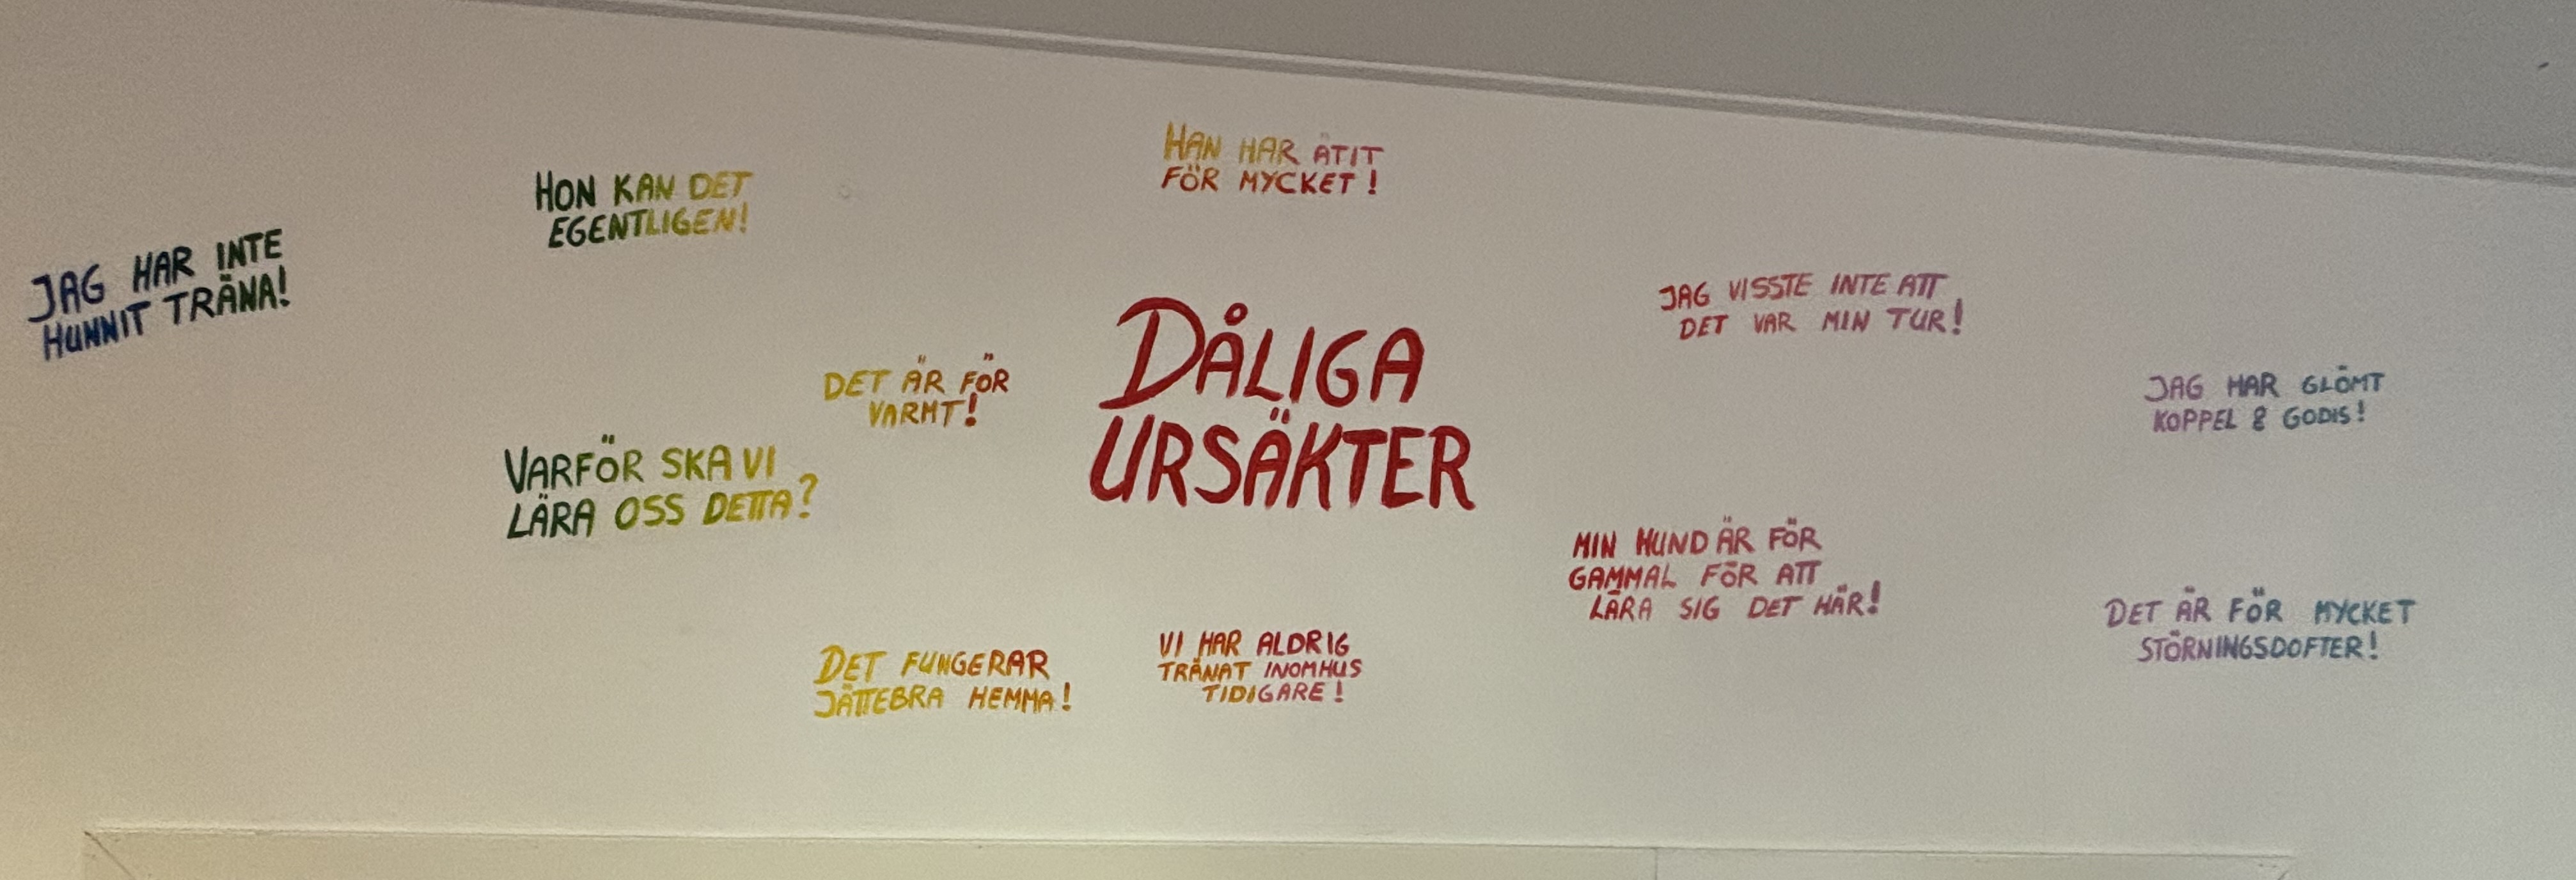 JAG HAR INTE
HUNNIT TRÄNA!
HON KAN DET
EGENTLIGEN!
VARFÖR SKA VI
LÄRA OSS DETTA?
DET ÄR FÖR
VARMT!
DET FUNGERAR
JÄTTEBRA HEMMA!
HAN HAR ÄTIT
FÖR MYCKET!
DÅLIGA
URSÄKTER
VI HAR ALDRIG
TRÄNAT INOMHUS
TIDIGARE!
JAG VISSTE INTE ATT
DET VAR MIN TUR!
MIN HUND ÄR FÖR
GAMMAL FÖR ATT
LÄRA SIG DET HÄR!
JAG HAR GLÖMT
KOPPEL & GODIS!
DET ÄR FÖR MYCKET
STÖRNINGSDOFTER!